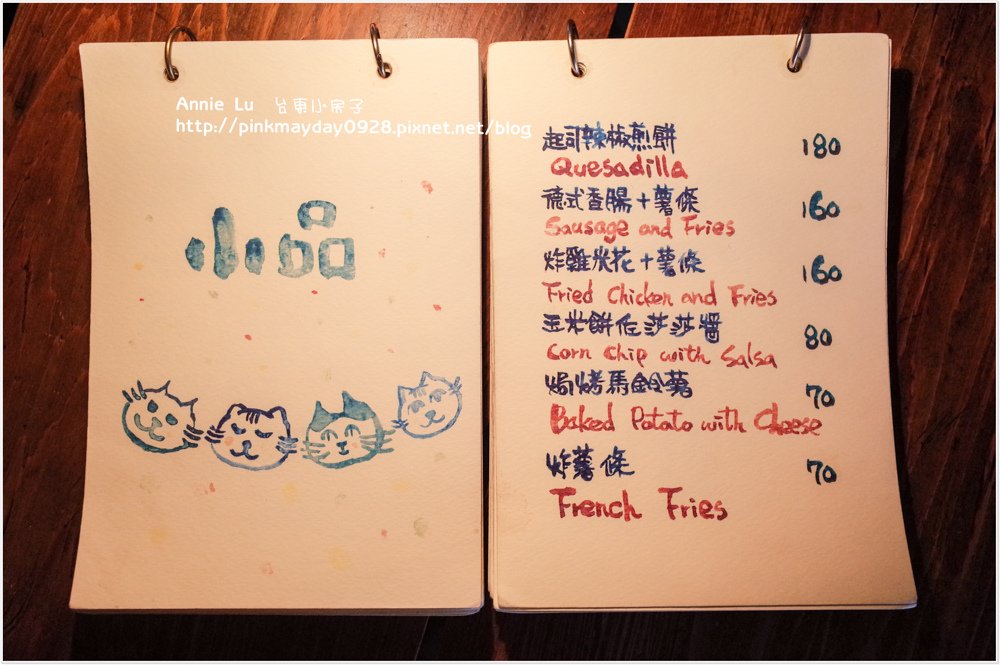 Annie Lu 台東小房子
http://pinkmayday0928.pixnet.net/blog
小品
起司辣椒煎餅 180
Quesadilla
德式香腸+薯條 160
Sausage and Fries
炸雞米花+薯條 160
Fried Chicken and Fries
玉米餅佐莎莎醬 80
Corn Chip with Salsa
焗烤馬鈴薯 70
Baked Potato with Cheese
炸薯條 70
French Fries